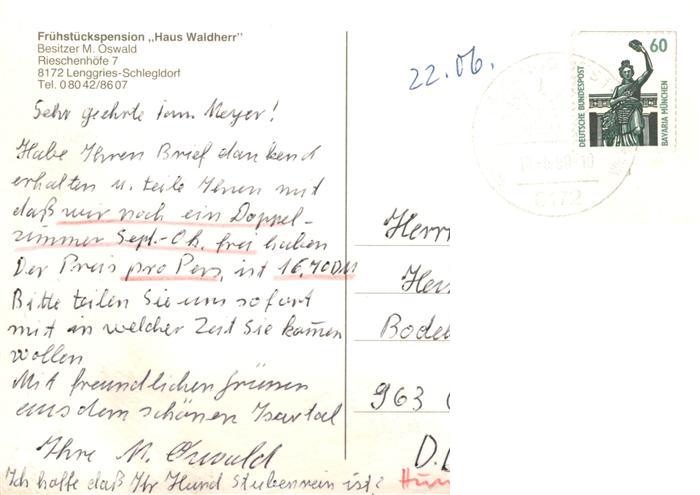 Frühstückspension „Haus Waldherr"
Besitzer M. Oswald
Rieschenhöfe 7
8172 Lenggries-Schlegldorf
Tel. 0 80 42/86 07
22.06.
60
DEUTSCHE BUNDESPOST
BAVARIA MÜNCHEN
8172
Sehr geehrte Fam. Meyer!
Habe Ihren Brief dankend
erhalten u. teile Ihnen mit
daß wir noch ein Doppel-
zimmer Sept.-Ok. frei haben
Der Preis pro Pers. ist 16,40 DM
Bitte teilen Sie uns sofort
mit in welcher Zeit Sie kommen
wollen
Mit freundlichen Grüssen
aus dem schönen Isartal
Ihre M. Oswald
Ich hoffe daß Ihr Hund Stubenrein ist?
Herr
Her
Bode
963
D.